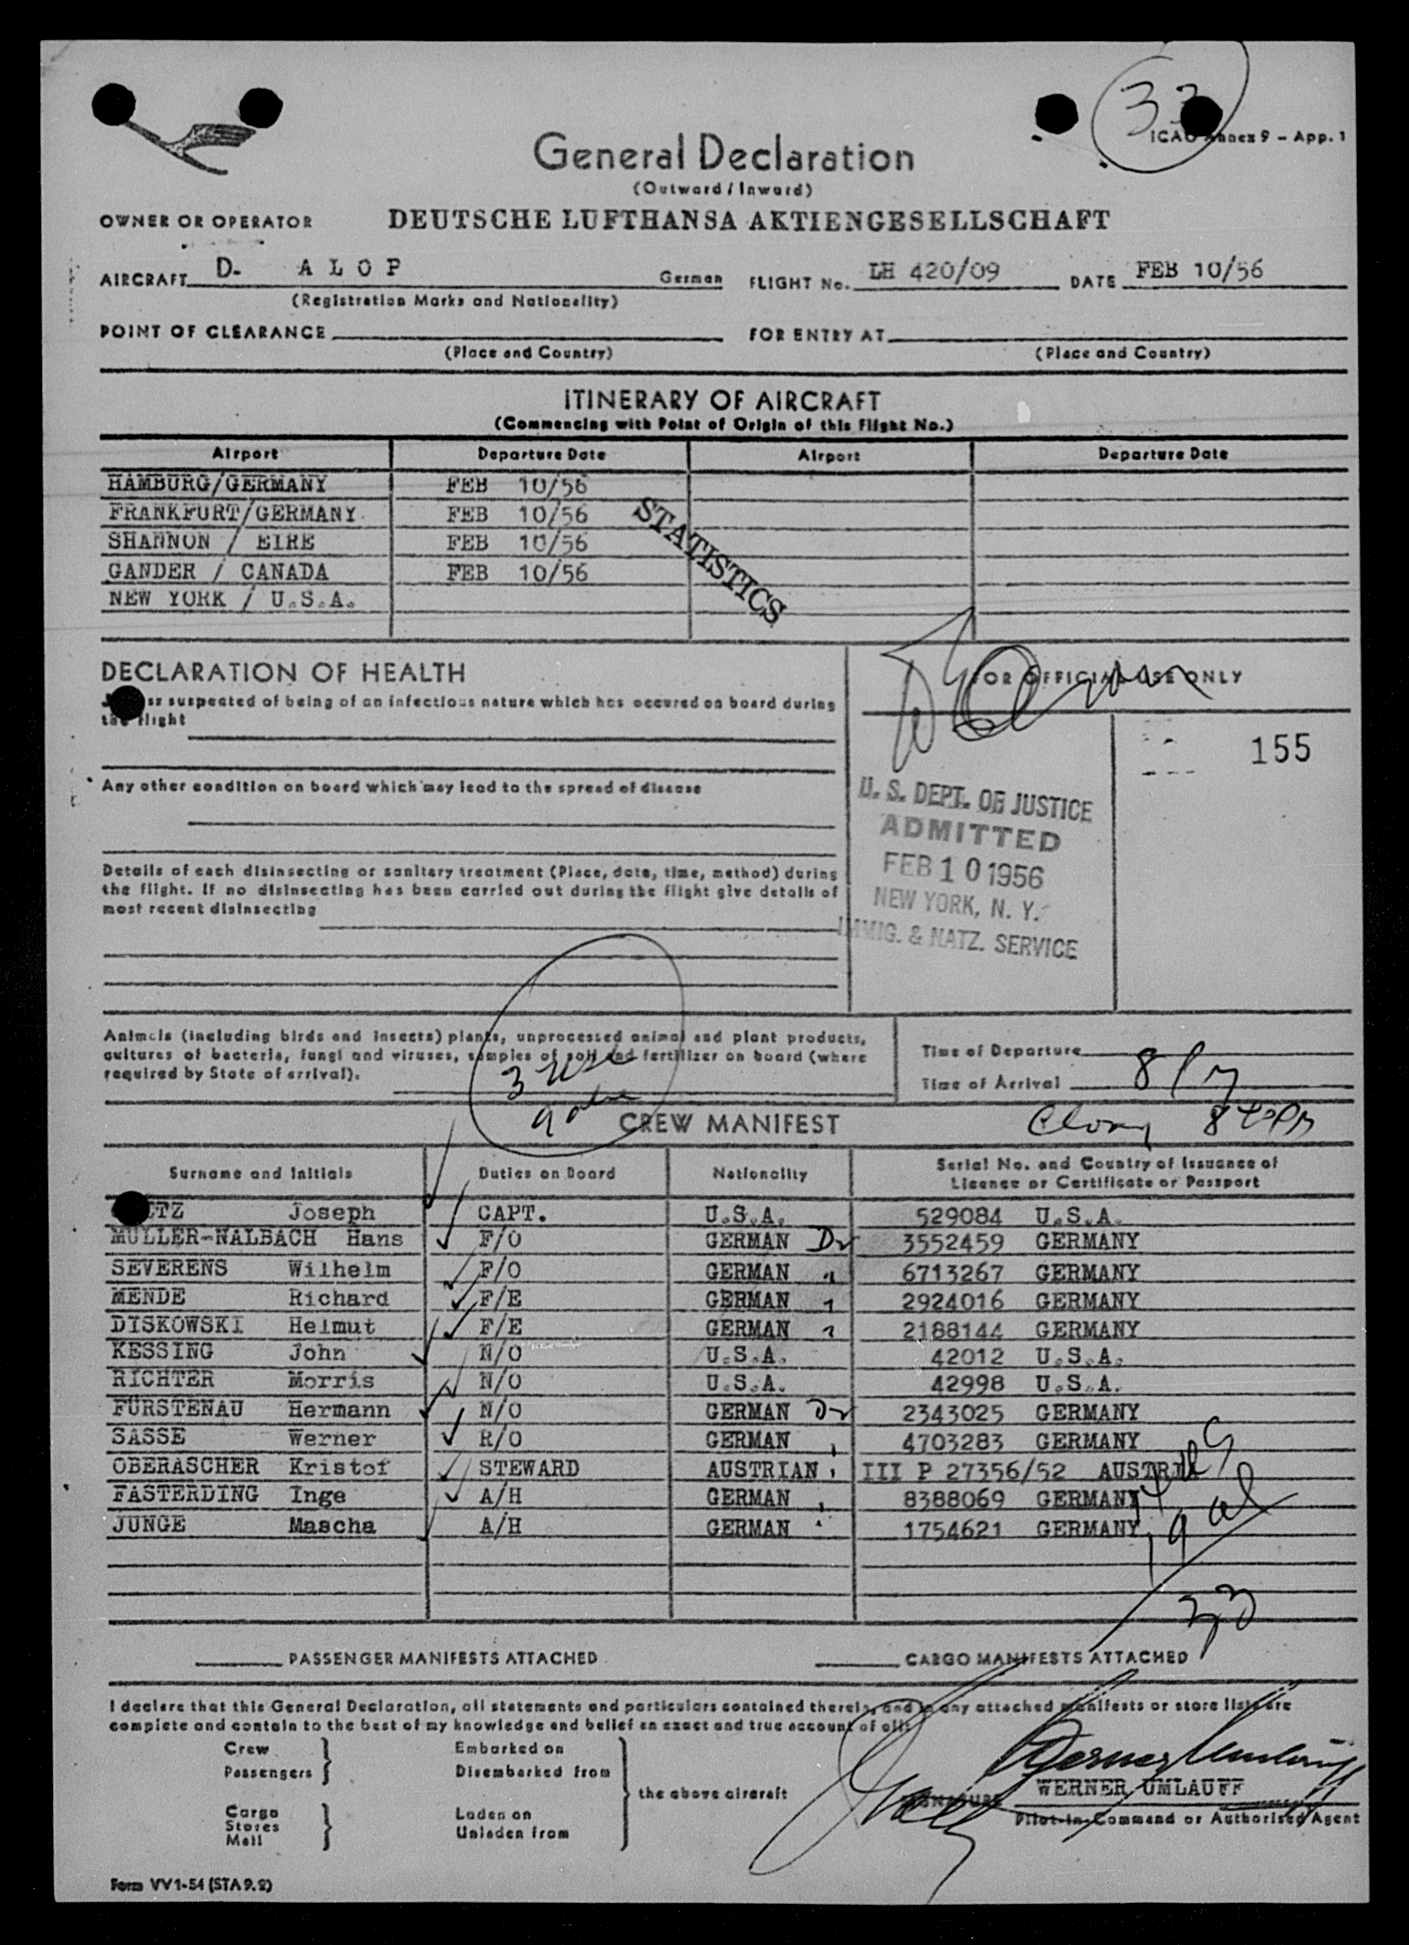 33
ICAO Annex 9 – App. 1
General Declaration
(Outward / Inward)
OWNER OR OPERATOR DEUTSCHE LUFTHANSA AKTIENGESELLSCHAFT
AIRCRAFT D. A L O P German FLIGHT No. LH 420/09 DATE FEB 10/56
(Registration Marks and Nationality)
POINT OF CLEARANCE FOR ENTRY AT
(Place and Country) (Place and Country)
ITINERARY OF AIRCRAFT
(Commencing with Point of Origin of this Flight No.)
Airport Departure Date Airport Departure Date
HAMBURG/GERMANY FEB 10/56
FRANKFURT/GERMANY FEB 10/56
SHANNON / EIRE FEB 10/56
GANDER / CANADA FEB 10/56
NEW YORK / U.S.A.
STATISTICS
DECLARATION OF HEALTH
FOR OFFICIAL USE ONLY
suspected of being of an infectious nature which has occured on board during
the flight
155
Any other condition on board which may lead to the spread of disease
U. S. DEPT. OF JUSTICE
ADMITTED
FEB 10 1956
NEW YORK, N. Y.
IMMIG. & NATZ. SERVICE
Details of each disinsecting or sanitary treatment (Place, date, time, method) during
the flight. If no disinsecting has been carried out during the flight give details of
most recent disinsecting
Animals (including birds and insects) plants, unprocessed animal and plant products,
cultures of bacteria, fungi and viruses, samples of soil and fertilizer on board (where
required by State of arrival).
Time of Departure
Time of Arrival 8 PM
3 USC
9
CREW MANIFEST
Surname and Initials Duties on Board Nationality Serial No. and Country of Issuance of
Licence or Certificate or Passport
TZ Joseph CAPT. U.S.A. 529084 U.S.A.
MÜLLER-NALBACH Hans F/O GERMAN 3552459 GERMANY
SEVERENS Wilhelm F/O GERMAN 6713267 GERMANY
MENDE Richard F/E GERMAN 2924016 GERMANY
DISKOWSKI Helmut F/E GERMAN 2188144 GERMANY
KESSING John N/O U.S.A. 42012 U.S.A.
RICHTER Morris N/O U.S.A. 42998 U.S.A.
FÜRSTENAU Hermann N/O GERMAN 2343025 GERMANY
SASSE Werner R/O GERMAN 4703283 GERMANY
OBERASCHER Kristof STEWARD AUSTRIAN III P 27356/52 AUSTRIA
FASTERDING Inge A/H GERMAN 8388069 GERMANY
JUNGE Mascha A/H GERMAN 1754621 GERMANY
PASSENGER MANIFESTS ATTACHED CARGO MANIFESTS ATTACHED
I declare that this General Declaration, all statements and particulars contained therein, and in any attached manifests or store lists are
complete and contain to the best of my knowledge and belief an exact and true account of all:
Crew Embarked on
Passengers Disembarked from
the above aircraft
Cargo Laden on
Stores
Mail Unladen from
Werner Umlauff
SIGNATURE WERNER UMLAUFF
Pilot-in-Command or Authorised Agent
Form VV1-54 (STA 9.2)